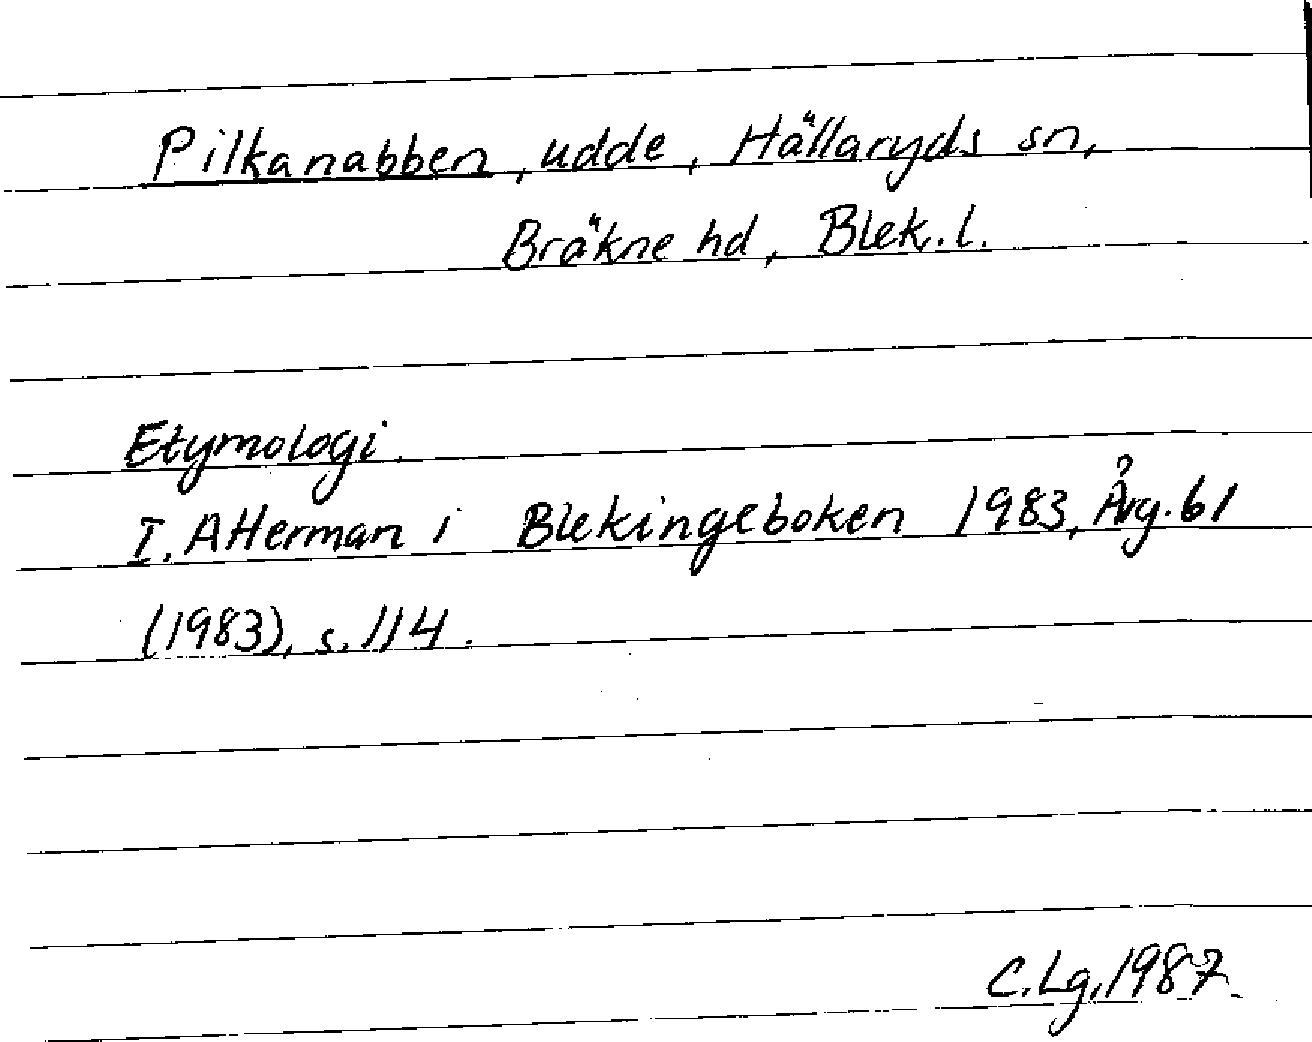 Pilkanabben, udde, Hällaryds sn,
Bräkne hd, Blek. l.
Etymologi.
I. Atterman i Blekingeboken 1983, Årg. 61
(1983), s. 114.
C. Lg, 1987.